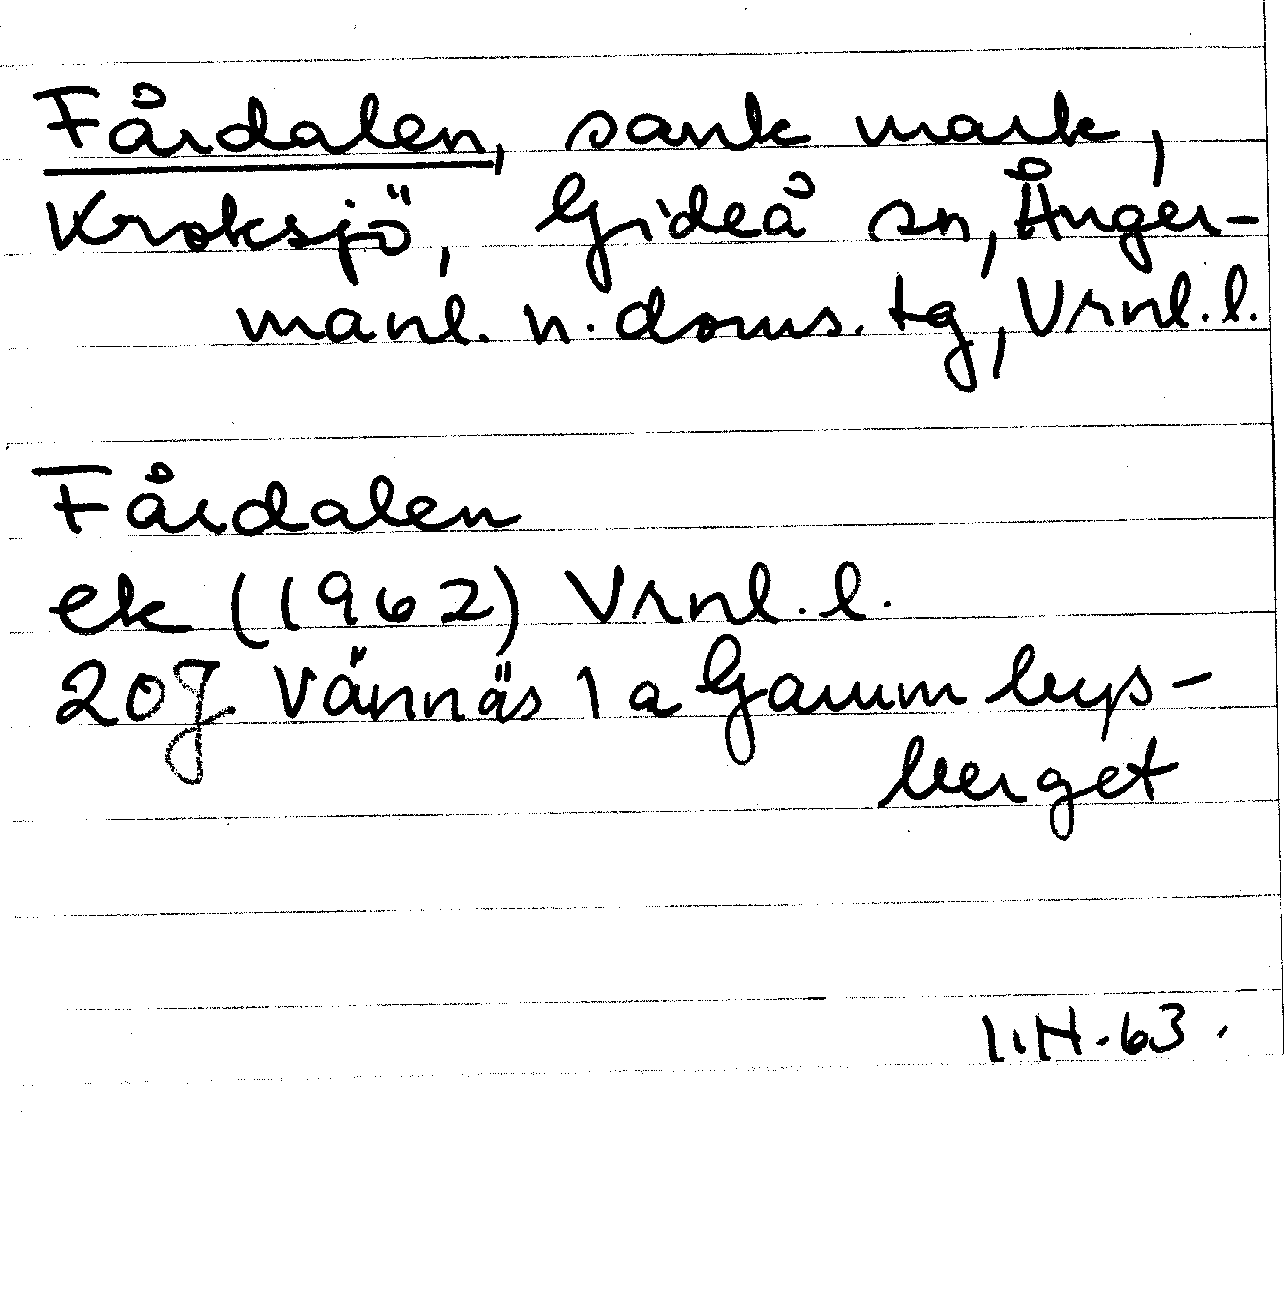 Fårdalen, sank mark,
Kroksjö, Gideå sn, Ånger-
manl. n. doms. tg, Vrnl. l.
Fårdalen
ek (1962) Vrnl. l.
20J Vännäs 1 a Gammbys-
berget
I.H. 63.